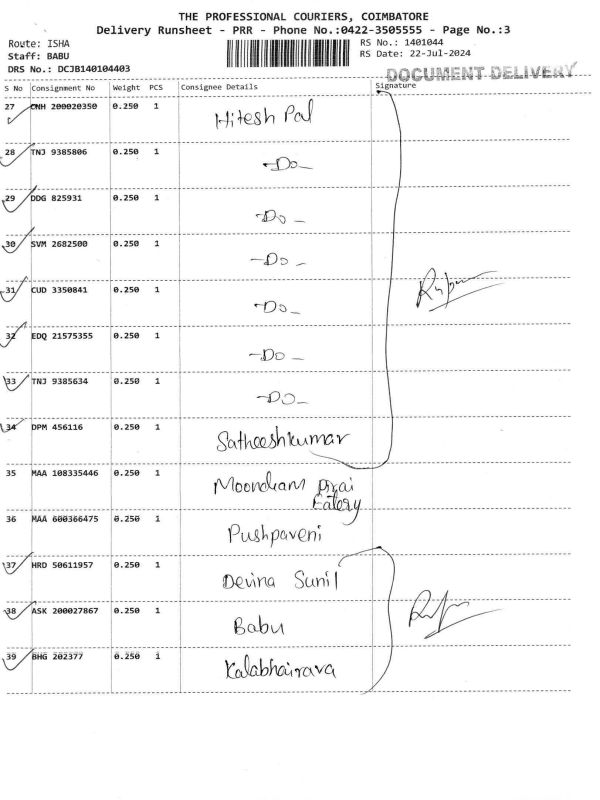 THE PROFESSIONAL COURIERS, COIMBATORE
Delivery Runsheet - PRR - Phone No.:0422-3505555 - Page No.:3
Route: ISHA RS No.: 1401044
Staff: BABU RS Date: 22-Jul-2024
DRS No.: DCJB140104403 DOCUMENT DELIVERY
S No Consignment No Weight PCS Consignee Details Signature
27 CNH 200020350 0.250 1 Hitesh Pal
28 TNJ 9385806 0.250 1 -Do-
29 DDG 825931 0.250 1 -Do-
30 SVM 2682500 0.250 1 -Do-
31 CUD 3350841 0.250 1 -Do-
32 EDQ 21575355 0.250 1 -Do-
33 TNJ 9385634 0.250 1 -Do-
34 DPM 456116 0.250 1 Satheeshkumar
35 MAA 108335446 0.250 1 Moondram Pirai
Eatery
36 MAA 600366475 0.250 1 Pushpaveni
37 HRD 50611957 0.250 1 Devina Sunil
38 ASK 200027867 0.250 1 Babu
39 BHG 202377 0.250 1 Kalabhairava